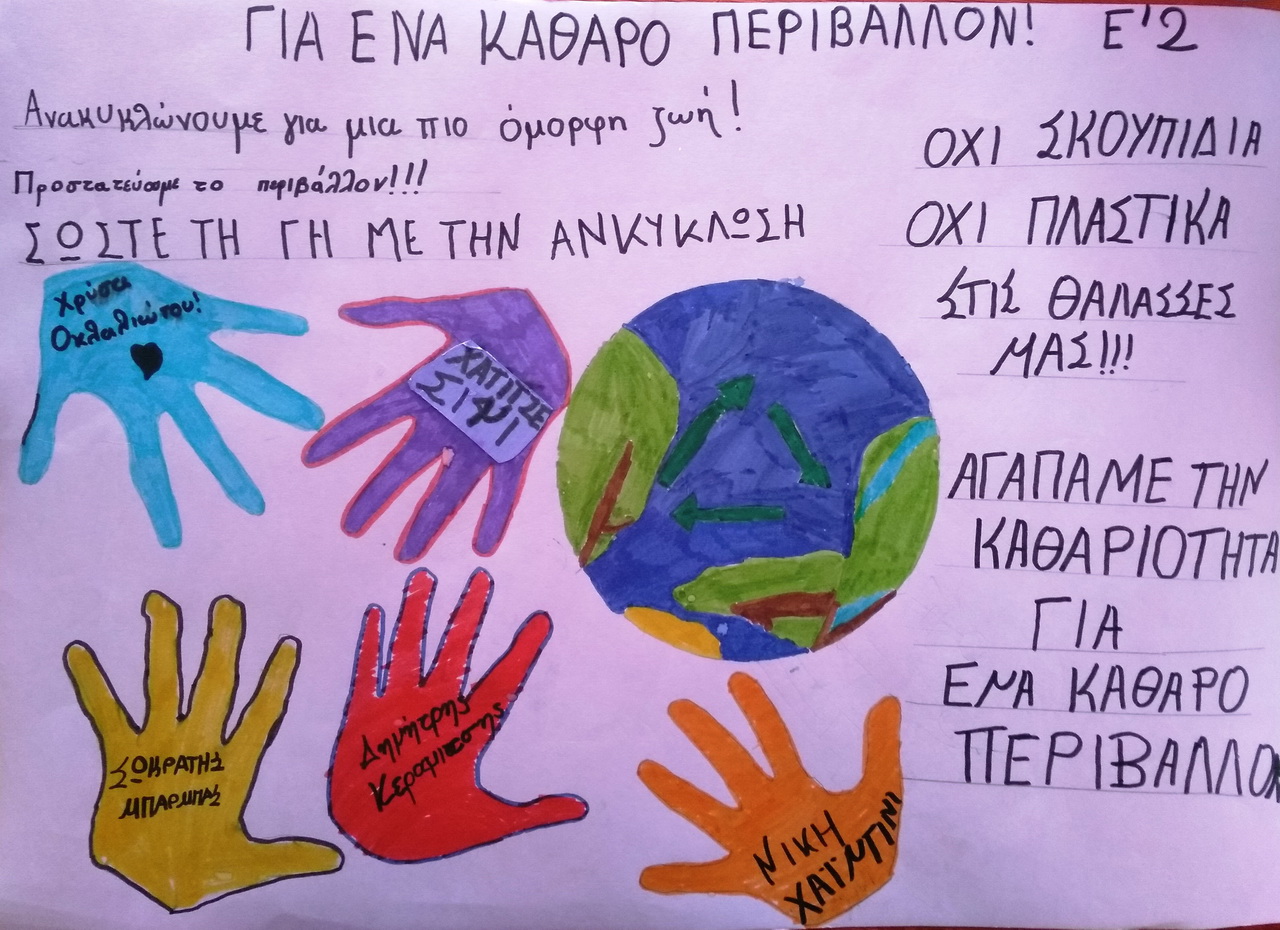 ΓΙΑ ΕΝΑ ΚΑΘΑΡΟ ΠΕΡΙΒΑΛΛΟΝ! Ε'2
Ανακυκλώνουμε για μια πιο όμορφη ζωή!
Προστατεύουμε το περιβάλλον!!!
ΣΩΣΤΕ ΤΗ ΓΗ ΜΕ ΤΗΝ ΑΝΚΥΚΛΩΣΗ
ΟΧΙ ΣΚΟΥΠΙΔΙΑ
ΟΧΙ ΠΛΑΣΤΙΚΑ
ΣΤΙΣ ΘΑΛΑΣΣΕΣ
ΜΑΣ!!!
ΑΓΑΠΑΜΕ ΤΗΝ
ΚΑΘΑΡΙΟΤΗΤΑ
ΓΙΑ
ΕΝΑ ΚΑΘΑΡΟ
ΠΕΡΙΒΑΛΛΟΝ
Χρύσα
ΧΑΤΙΤΖΕ
ΣΙΨΙ
ΣΩΚΡΑΤΗΣ
ΜΠΑΡΜΠΑΣ
Δημήτρης
ΝΙΚΗ
ΧΑΪΝΤΙΝΙ